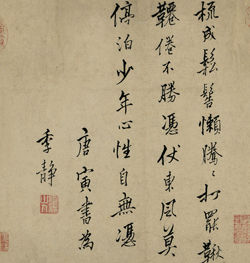 梳成鬆髻懶騰騰打罷鞦
韆倦不勝憑仗東風莫
停泊少年心性自無憑
唐寅書為
季靜